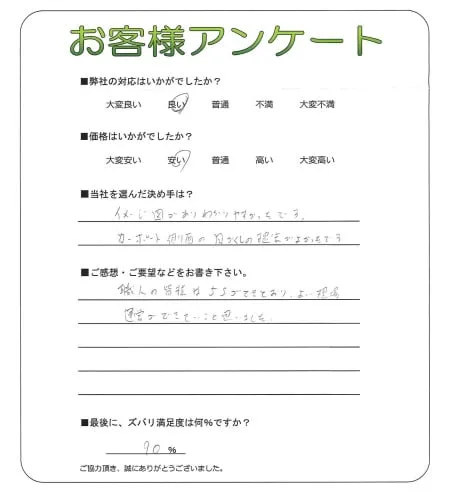 お客様アンケート
■弊社の対応はいかがでしたか？
大変良い 良い 普通 不満 大変不満
■価格はいかがでしたか？
大変安い 安い 普通 高い 大変高い
■当社を選んだ決め手は？
イメージ図がありわかりやすかったです。
カーポート側面の目かくしの提案がよかったです
■ご感想・ご要望などをお書き下さい。
職人の皆様は5Sができており、よい現場
運営ができていると思いました。
■最後に、ズバリ満足度は何%ですか？
90 %
ご協力頂き、誠にありがとうございました。